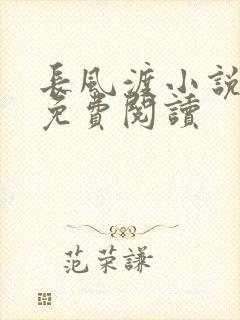 長風渡小說
免費閱讀
范荣謙